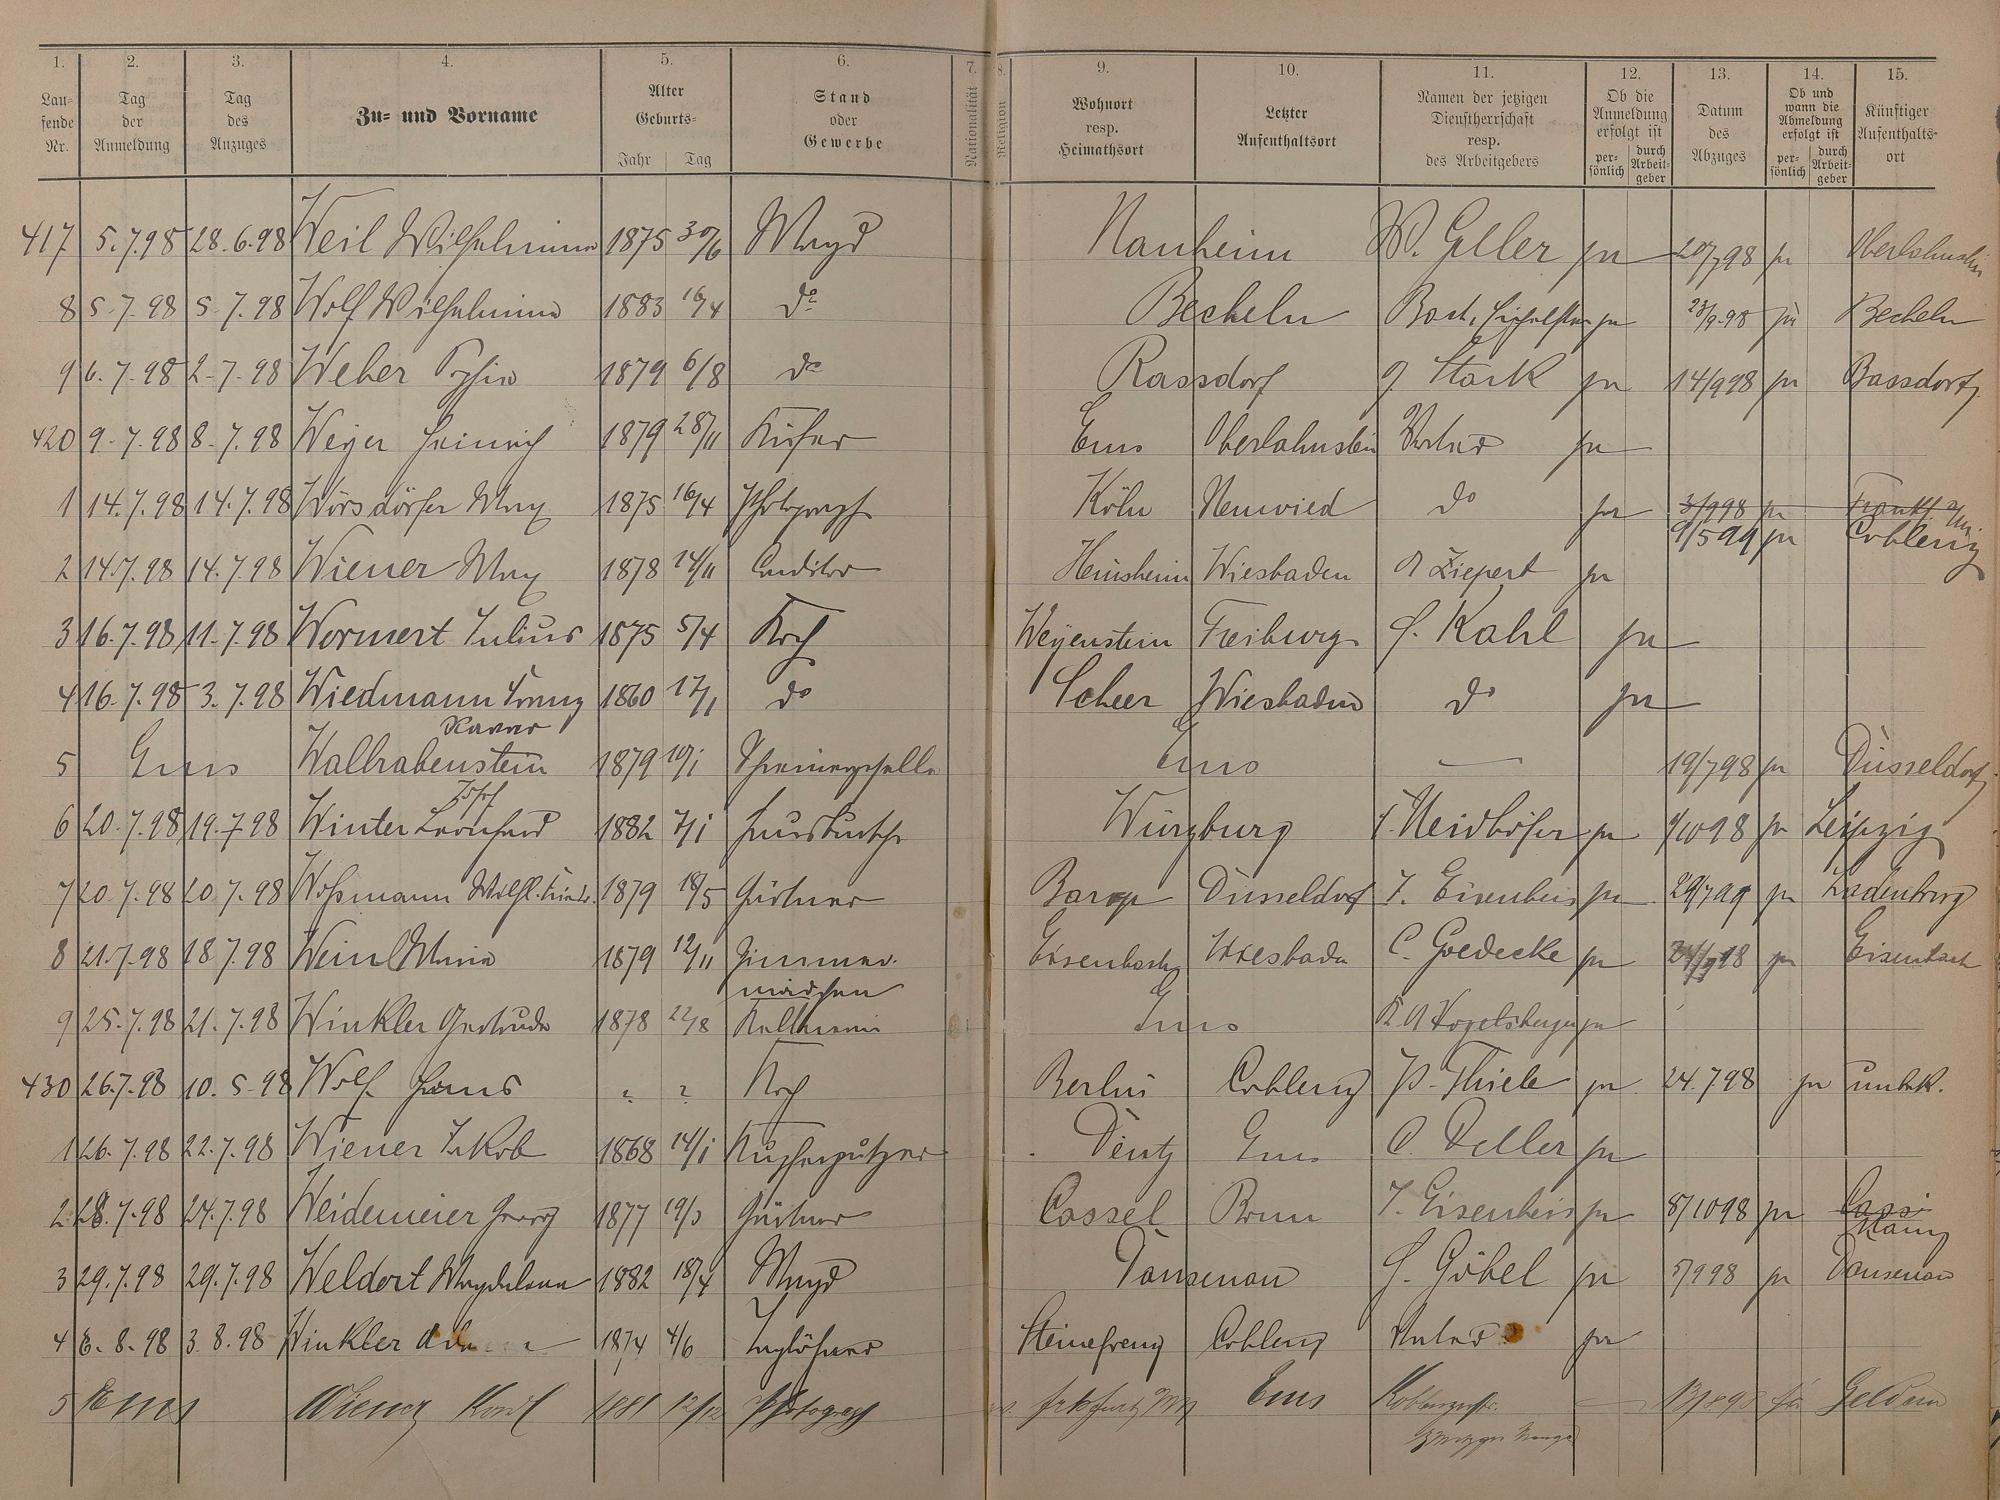 1. 2. 3. 4. 5. 6. 7. 8. 9. 10. 11. 12. 13. 14. 15.
Lau-
fende
Nr.
Tag
der
Anmeldung
Tag
des
Anzuges
Zu- und Vorname
Alter
Geburts-
Jahr Tag
Stand
oder
Gewerbe
Nationalität
Religion
Wohnort
resp.
Heimathsort
Letzter
Aufenthaltsort
Namen der jetzigen
Dienstherrschaft
resp.
des Arbeitgebers
Ob die
Anmeldung
erfolgt ist
per-
sönlich
durch
Arbeit-
geber
Datum
des
Abzuges
Ob und
wann die
Abmeldung
erfolgt ist
per-
sönlich
durch
Arbeit-
geber
Künftiger
Aufenthalts-
ort
417 5.7.98 28.6.98 Weil Wilhelmine 1875 30/6 Magd Nauheim W. Geller pr 20/7 98 pr Oberlahnstein
8 5.7.98 5.7.98 Wolf Wilhelmine 1883 16/4 do Becheln pr 23/9.98 pr Becheln
9 6.7.98 2.7.98 Weber 1879 6/8 do Rassdorf Stark pr 14/9 98 pr Bassdorf
420 9.7.98 8.7.98 Weyer Heinrich 1879 28/11 Küfer Ems Oberlahnstein pr
1 14.7.98 14.7.98 Wörsdörfer Max 1875 16/4 Photograph Köln Neuwied do pr 3/9 98 pr Frankf a/M
9/5 99 pr Coblenz
2 14.7.98 14.7.98 Wiener Max 1878 24/11 Conditor Heinsheim Wiesbaden A Ziepert pr
3 16.7.98 11.7.98 Wormert Julius 1875 5/4 Koch Weyenstein Freiburg H. Kahl pr
4 16.7.98 3.7.98 Wiedmann Franz 1860 17/1 do Scheer Wiesbaden do pr
Xaver
5 Ems Walrabenstein 1879 10/1 Schreinergeselle Ems — 19/7 98 pr Düsseldorf
Josef
6 20.7.98 19.7 98 Winter Leonhard 1882 7/1 Hausbursche Würzburg F. Neidhöfer pr 9/10 98 pr Leipzig
7 20.7.98 20.7.98 Woßmann Wilh. Friedr. 1879 18/5 Gärtner Barop Düsseldorf F. Eisenbeis pr 29/7 99 pr Ladenburg
8 21.7.98 18.7.98 Weinl Maria 1879 12/11 Zimmer- Eisenbach Wiesbaden C. Goedecke pr pr Eisenbach
mädchen
9 25.7.98 21.7.98 Winkler Gertrude 1878 22/8 Kellnerin Ems R A Vogelsberger pr
430 26.7.98 10.5.98 Wolf Hans ? ? Koch Berlin Coblenz P. Thiele pr 24.7.98 pr unbek.
1 26.7.98 22.7.98 Wiener Jakob 1868 14/1 Kupferputzer Deutz Ems C. Deller pr
2 28.7.98 24.7.98 Weidemeier Georg 1877 19/3 Gärtner Cassel Bonn F. Eisenbeis pr 8/10 98 pr Cass
Mainz
3 29.7.98 29.7.98 Weldert Magdalena 1882 18/4 Magd Dausenau H. Göbel pr 5/9 98 pr Dausenau
4 6.8.98 3.8.98 Winkler 1874 4/6 Taglöhner Steinefrenz Coblenz pr
5 Ems Wiener Karl 1881 12/12 Photograph Frkfurt a/M Ems 13/8 98 Geldern